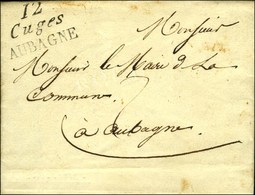 12
Cuges
AUBAGNE
Monsieur
Monsieur le Maire de La
Commune
à aubagne